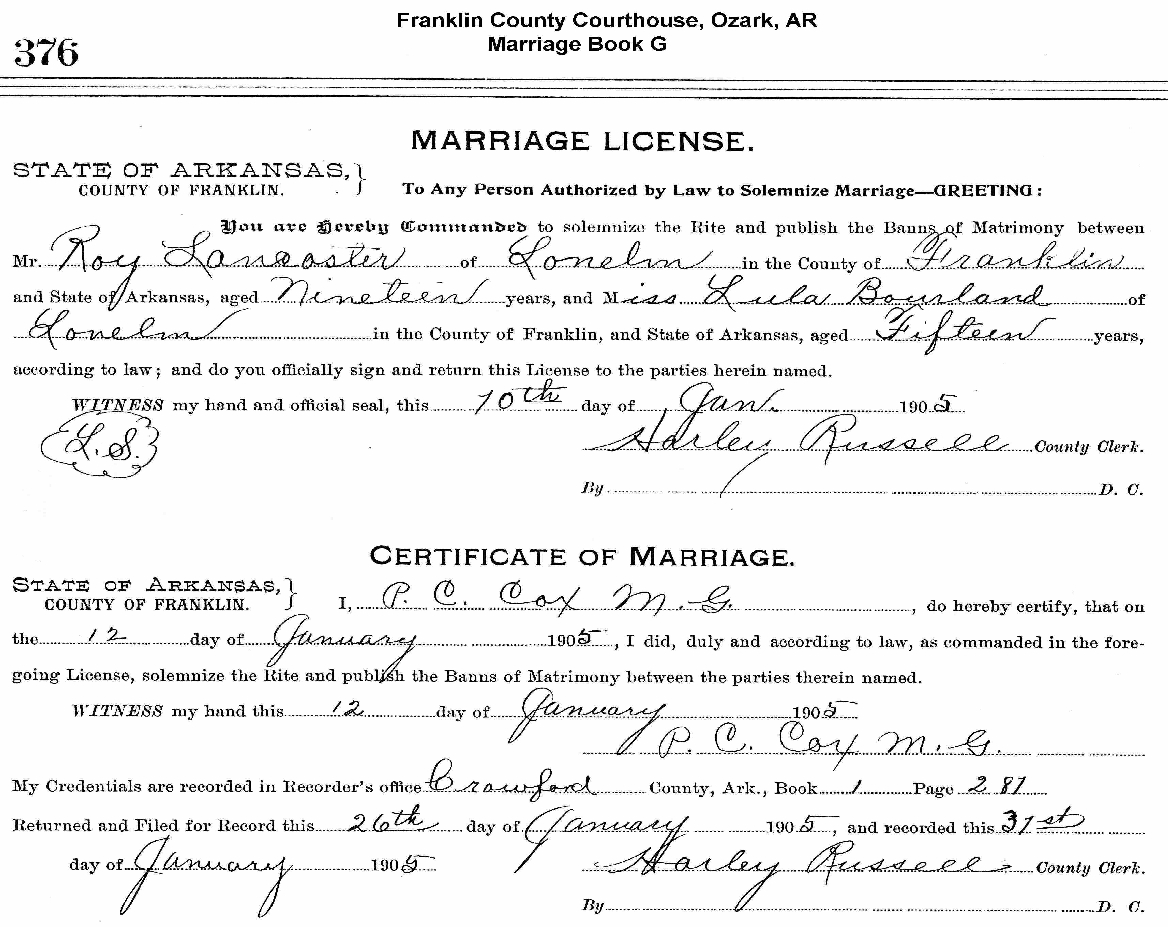 Franklin County Courthouse, Ozark, AR
Marriage Book G
376
MARRIAGE LICENSE.
STATE OF ARKANSAS, }
COUNTY OF FRANKLIN. } To Any Person Authorized by Law to Solemnize Marriage—GREETING:
You are Hereby Commanded to solemnize the Rite and publish the Banns of Matrimony between
Mr. Roy Lancaster of Lonelm in the County of Franklin
and State of Arkansas, aged Nineteen years, and Miss Lula Bourland of
Lonelm in the County of Franklin, and State of Arkansas, aged Fifteen years,
according to law; and do you officially sign and return this License to the parties herein named.
WITNESS my hand and official seal, this 10th day of Jan. 1905
L.S.
Harley Russell County Clerk.
By D. C.
CERTIFICATE OF MARRIAGE.
STATE OF ARKANSAS, }
COUNTY OF FRANKLIN. } I, P. C. Cox M.G. , do hereby certify, that on
the 12 day of January 1905, I did, duly and according to law, as commanded in the fore-
going License, solemnize the Rite and publish the Banns of Matrimony between the parties therein named.
WITNESS my hand this 12 day of January 1905
P. C. Cox M.G.
My Credentials are recorded in Recorder's office Crawford County, Ark., Book 1 Page 281
Returned and Filed for Record this 26th day of January 1905, and recorded this 31st
day of January 1905 Harley Russell County Clerk.
By D. C.